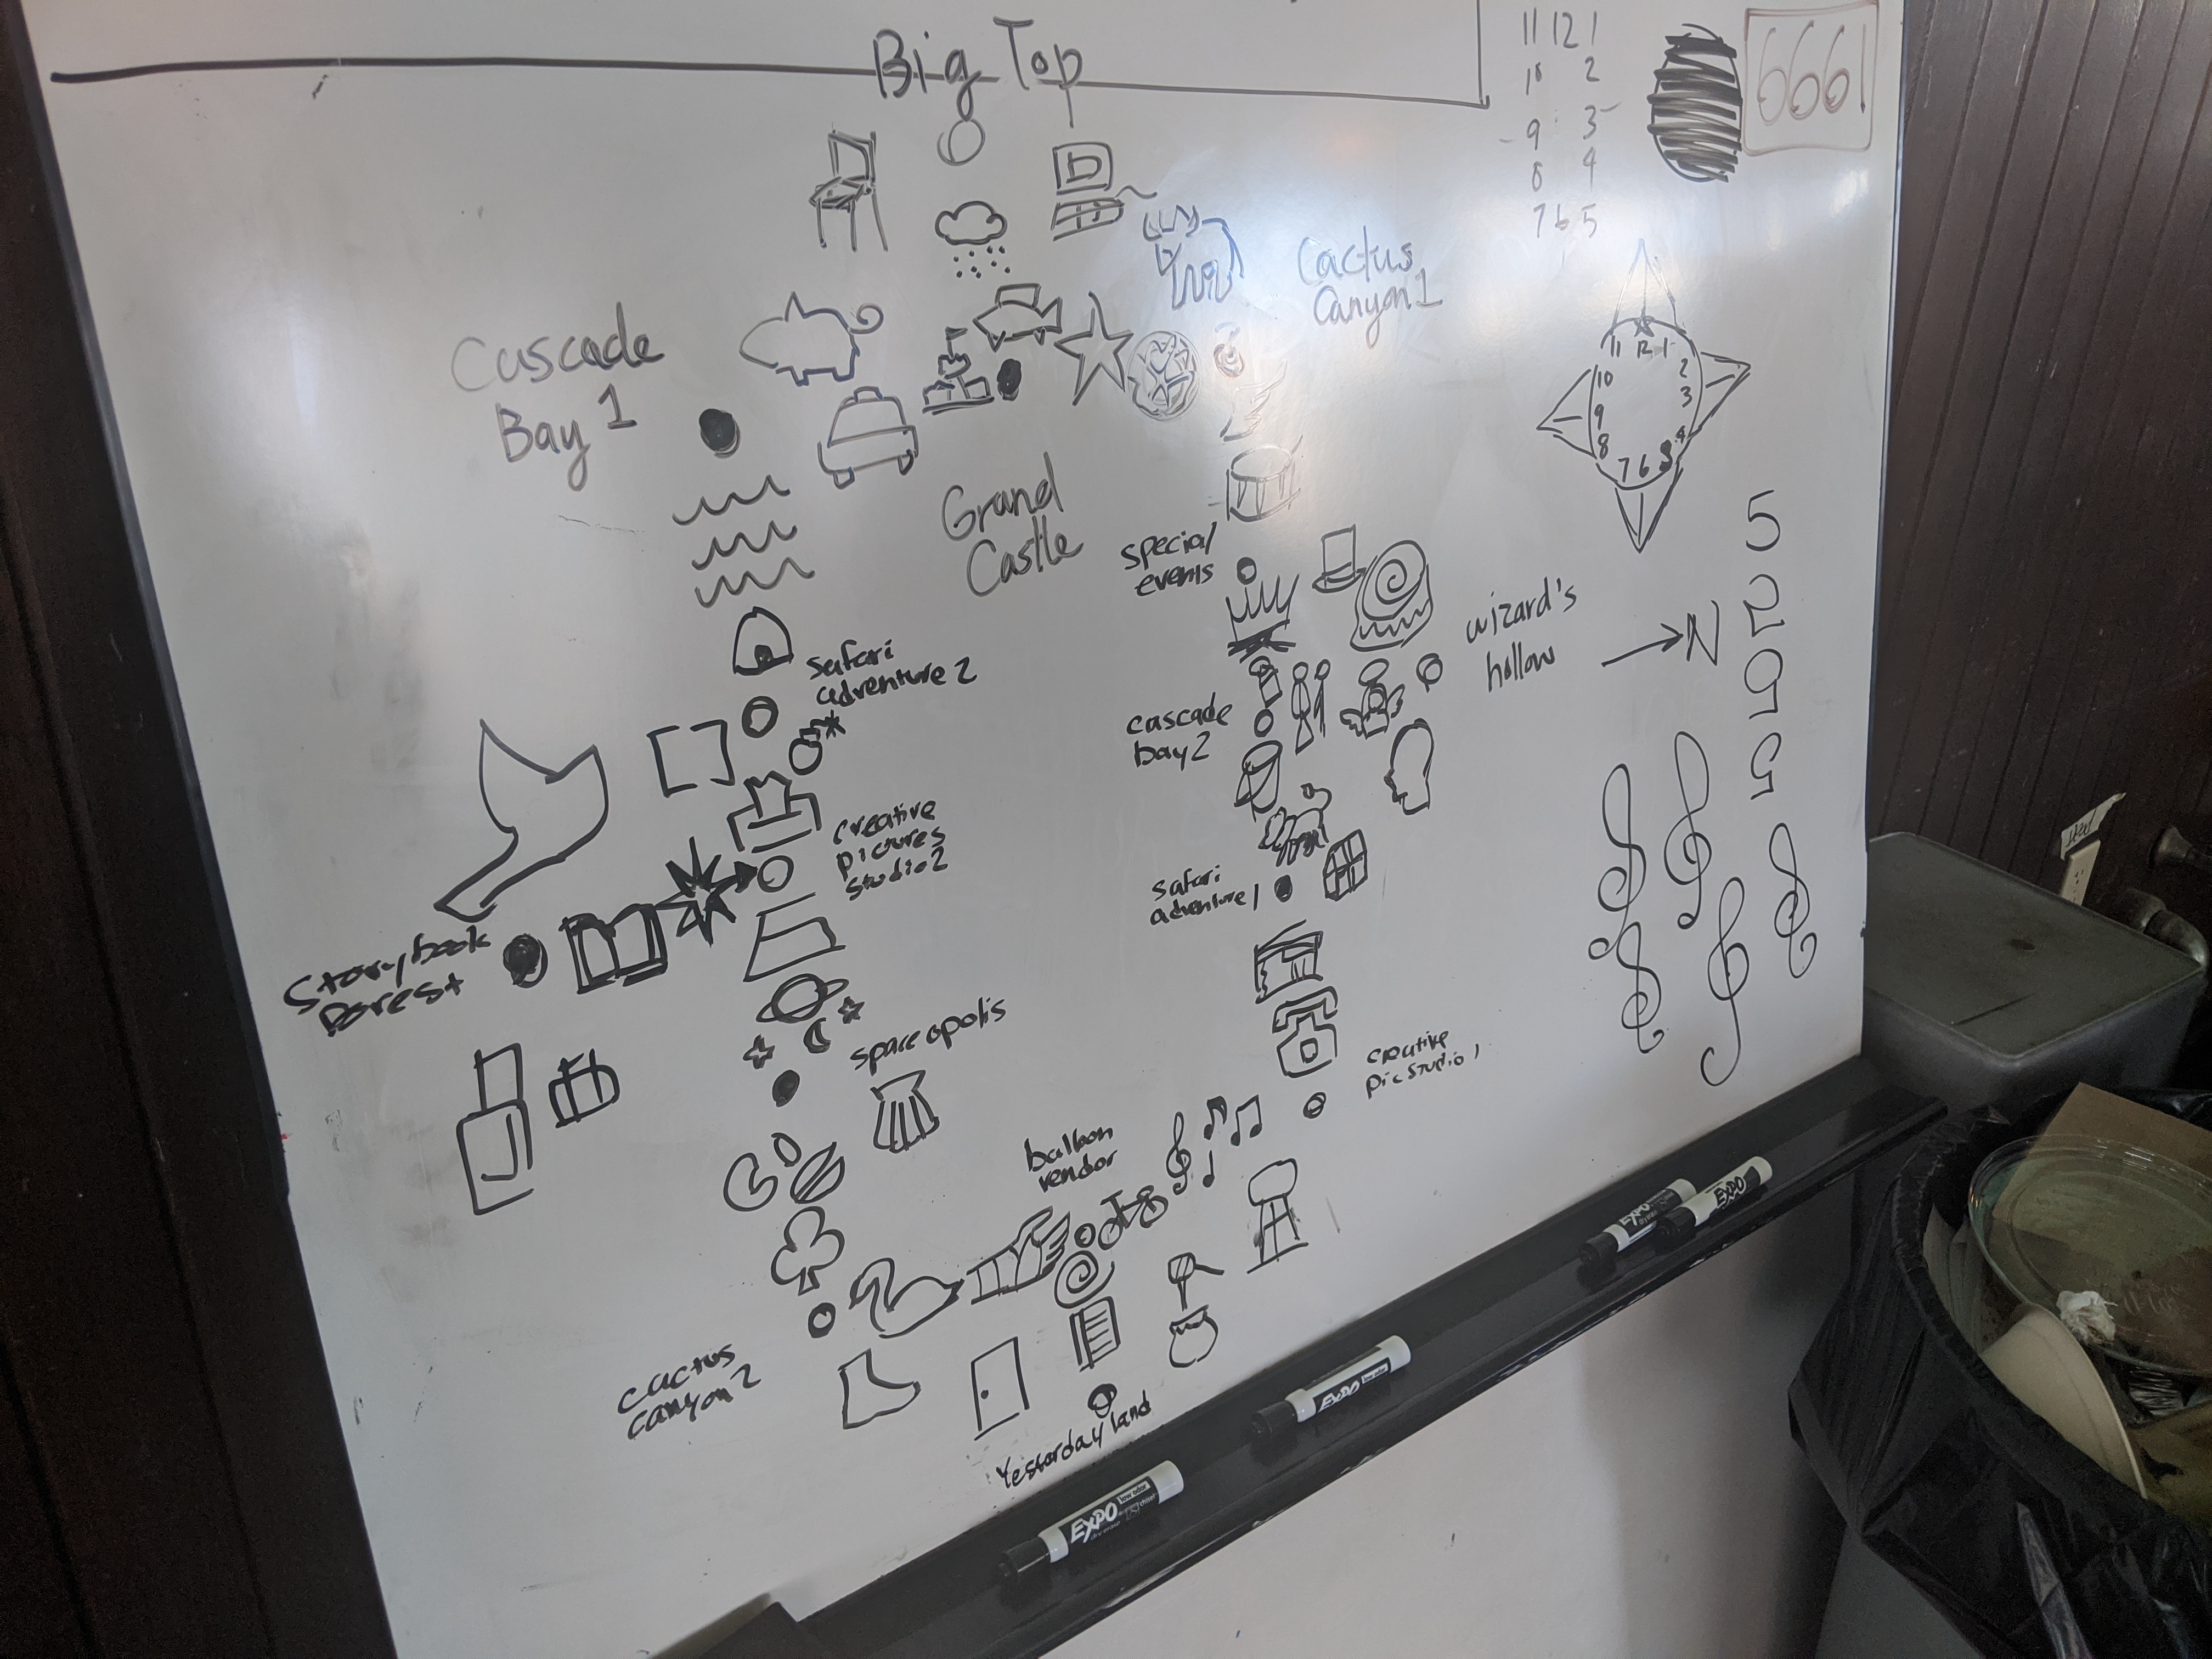 Big Top
11 12 1
10 2
9 3
8 4
7 6 5
6661
Cactus
Canyon 1
Cascade
Bay 1
11 12 1
10 2
9 3
8 4
7 6
Grand
Castle
special
events
wizard's
hollow
N
5
2
safari
adventure 2
cascade
bay 2
creative
pictures
studio 2
safari
adventure 1
Storybook
Forest
spaceopolis
creative
pic studio 1
balloon
vendor
cactus
canyon 2
Yesterday land
EXPO
EXPO
EXPO
EXPO
low odor